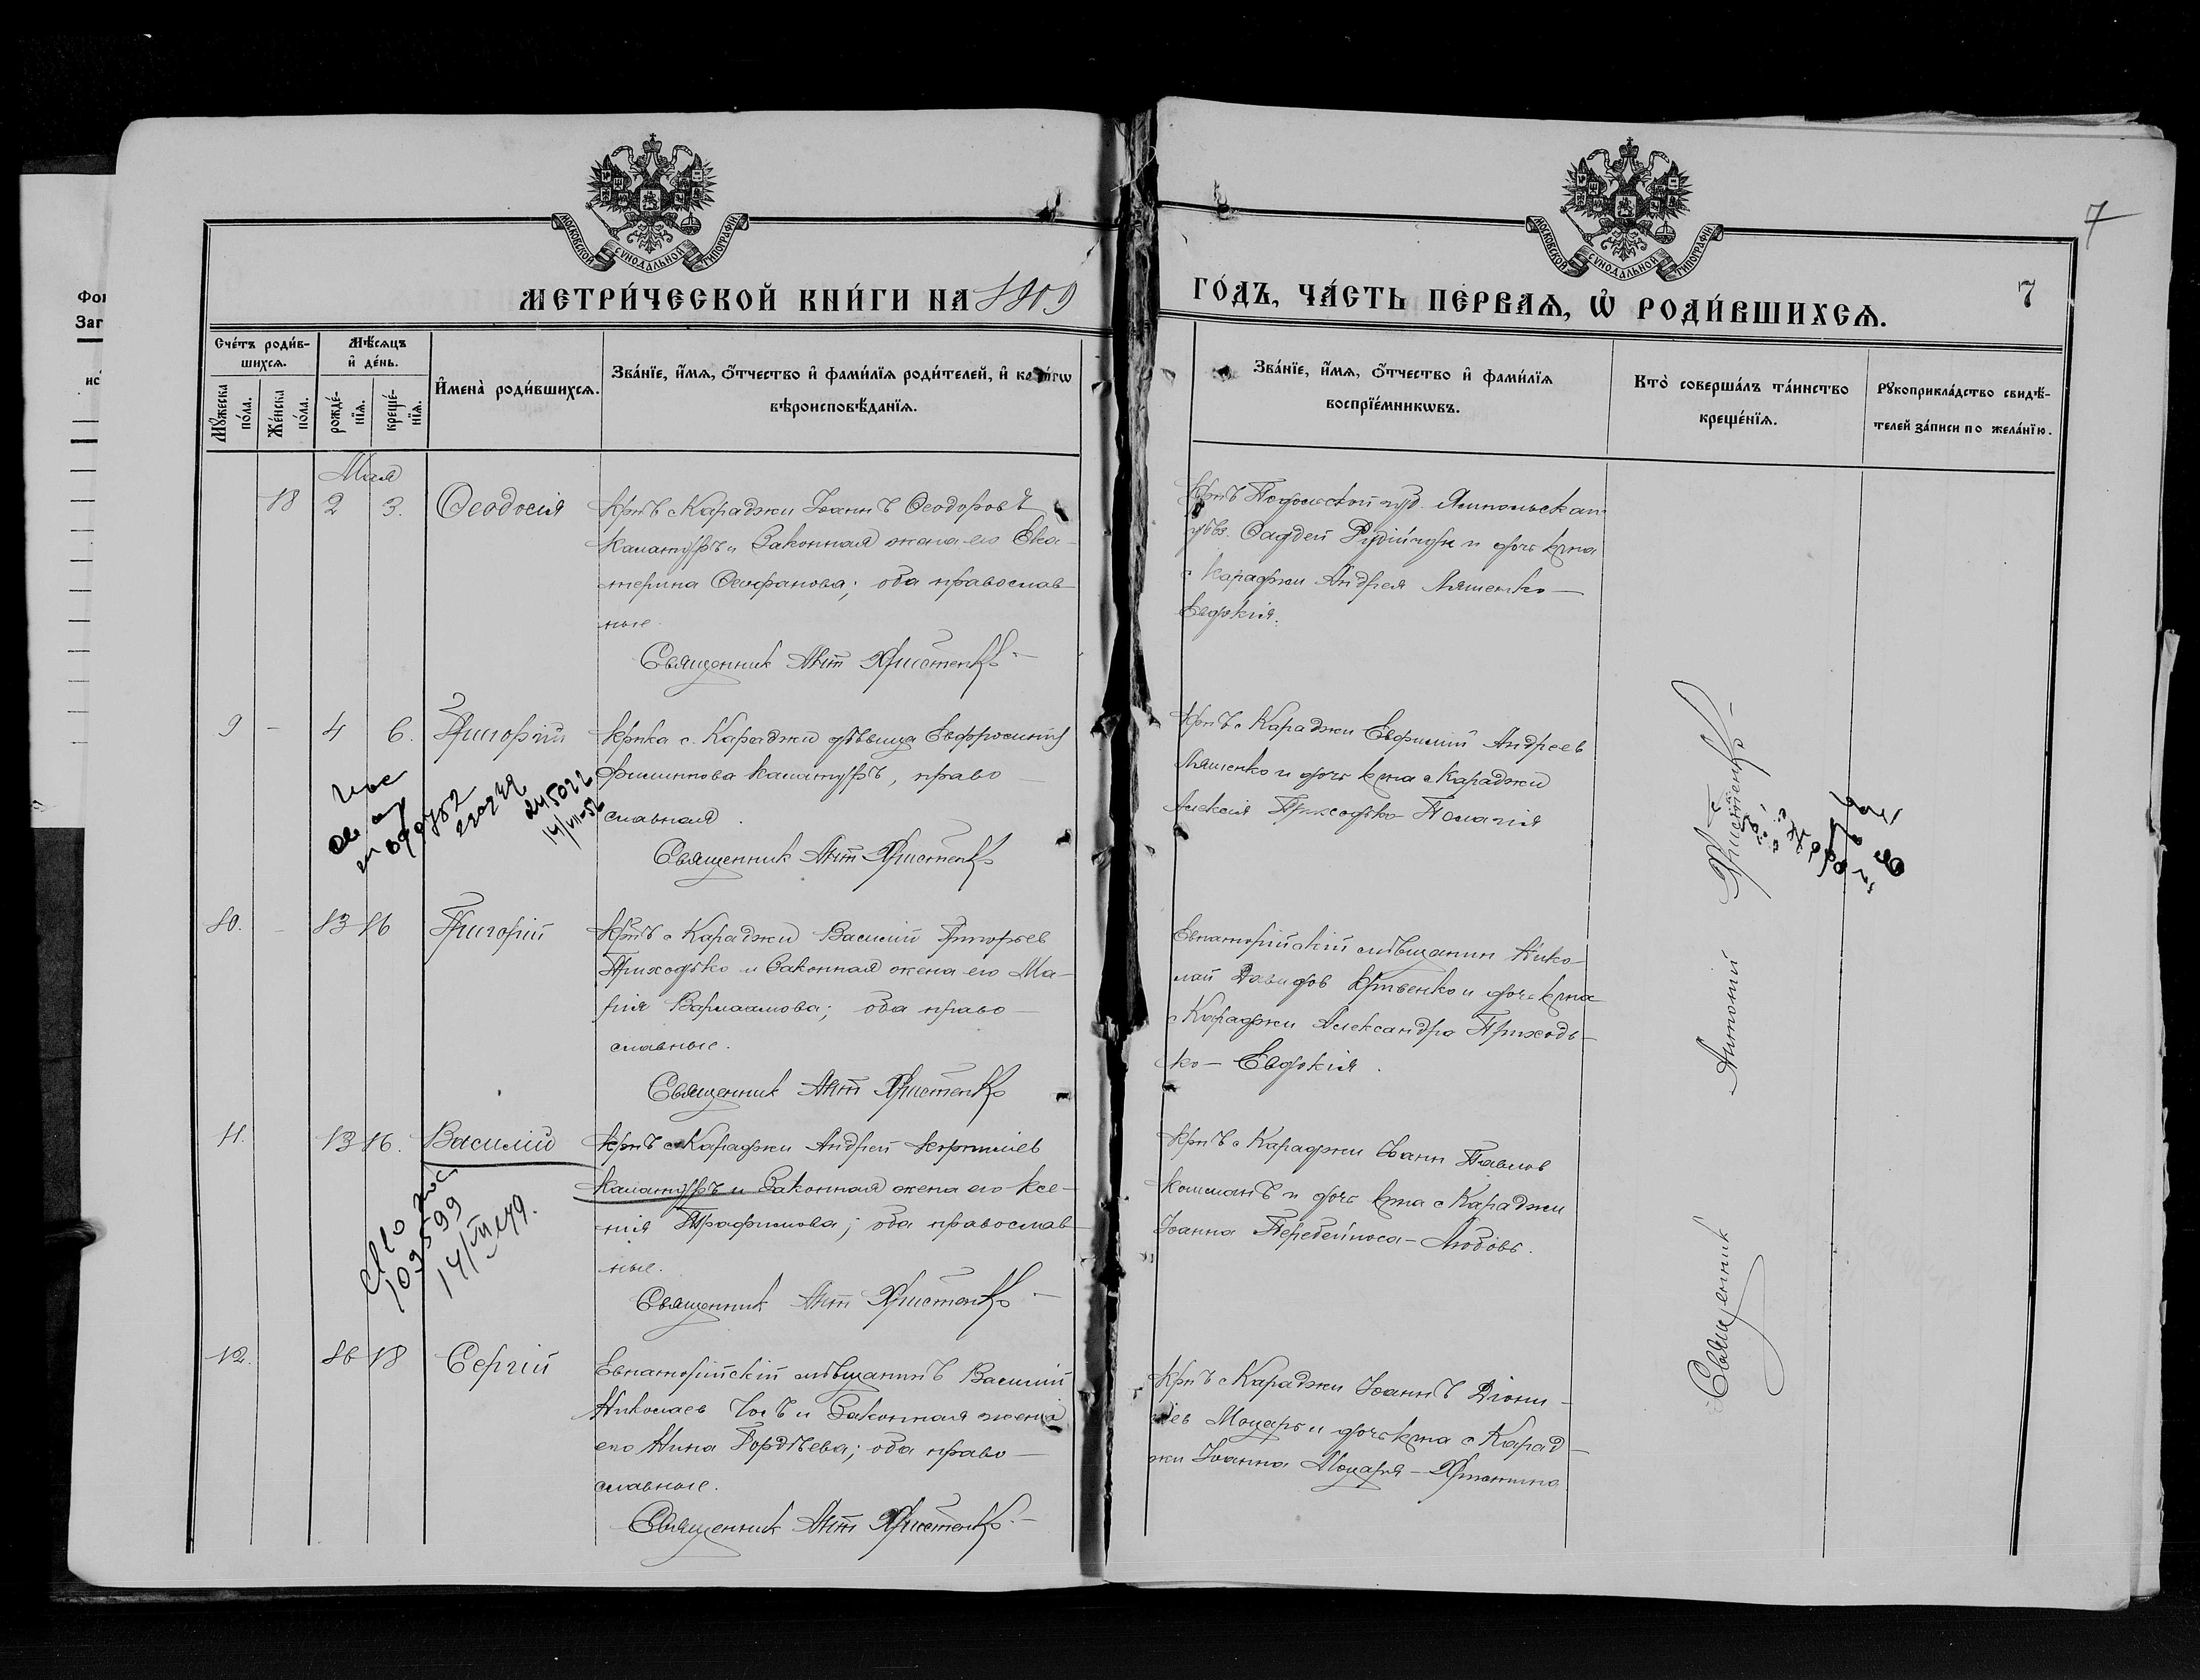 МОСКОВСКОЙ СУНОДАЛЬНОЙ ТИПОГРАФІИ
МОСКОВСКОЙ СУНОДАЛЬНОЙ ТИПОГРАФІИ
7
МЕТРИ́ЧЕСКОЙ КНИ́ГИ НА 1909
ГО́ДЪ, ЧА́СТЬ ПЕ́РВАѦ, Ѡ҆ РОДИ́ВШИХСѦ.
7
Сче́тъ роди́в-
шихсѧ.
Мꙋжеска
по́ла.
Же́нска
по́ла.
Мѣ́сѧцъ
и҆ де́нь.
рожде́-
нїѧ.
креще́-
нїѧ.
И҆мена̀ роди́вшихсѧ.
Зва́нїе, и҆́мѧ, о҆́тчество и҆ фами́лїѧ роди́телей, и҆
вѣроисповѣ́данїѧ.
Зва́нїе, и҆́мѧ, о҆́тчество и҆ фами́лїѧ
воспрїе́мникѡвъ.
Кто̀ соверша́лъ та́инство
креще́нїѧ.
Рꙋкоприкла́дство свидѣ́-
телей за́писи по жела́нїю.
Мая
18 2 3. Ѳеодосія
Крнъ с Караджи Іоаннъ Ѳеодоровъ
Каламуръ и законная жена его Ека-
терина Ѳеофанова; оба православ-
ные.
Священник Ант Христенко
Крнъ Подольской губ. Ямпольскаго
Ѳаддей и дочь крна
с Караджи Андрея Ляшенко —
Евдокія.
9 – 4 6. Григорій
Крнка с. Караджи дѣвица Евфросинія
Филиппова Каламуръ, право-
славная.
Священник Ант Христенко
Крнъ с Караджи Евфимий Андреев
Ляшенко и дочь крна с Караджи
Алексія Приходько Пелагія
10. – 13 16 Григорій
Крнъ с Караджи Василий Григорьев
Приходько и законная жена его Ма-
рія Варлаамова; оба право-
славные.
Священник Ант Христенко
Евпаторійскій мѣщанин Нико-
лай Давидов Кривенко и дочь крна
с Караджи Александра Приходь-
ко – Евдокія.
11. 13 16. Василий
Крнъ с Караджи Андрей
Каламуръ и законная жена его Ксе-
нія Трофимова; оба православ-
ные.
Священник Ант Христенко
Крнъ с Караджи Іоанн Павлов
и дочь крна с Караджи
Іоанна Перебейноса – Любовь.
109599
12. 16 18 Сергій
Евпаторійскій мѣщанинъ Василий
Николаев и законная жена
его Нина Гордѣева; оба право-
славные.
Священник Ант Христенко
Крнъ с Караджи Іоаннъ Діони-
сіев Моцарь и дочь крна с Карад-
жи Іоанна Моцаря – Христина
Священник Антоний Христенко